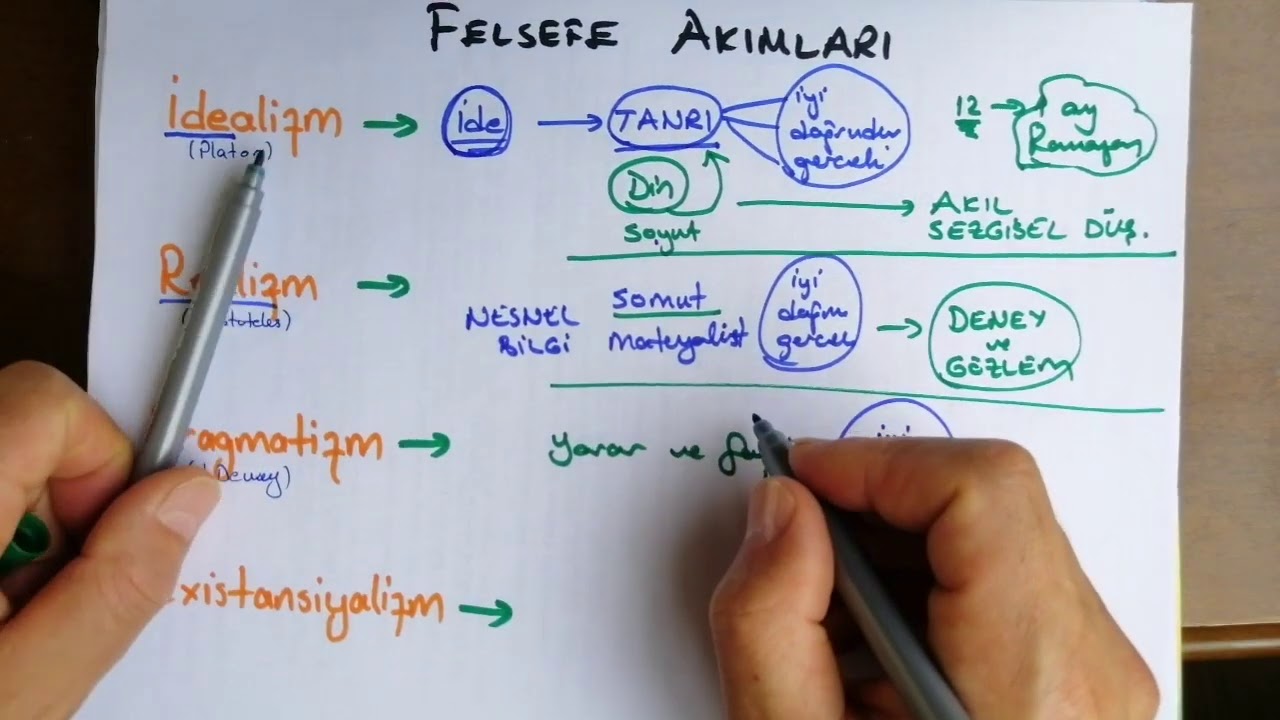 FELSEFE AKIMLARI
İdealizm
(Platon)
ide
TANRI
iyi
doğrudur
gerçek
12
ay
Ramazan
Din
soyut
AKIL
SEZGİSEL DÜŞ.
NESNEL
BİLGİ
somut
materyalist
iyi
doğru
gerçek
DENEY
ve
GÖZLEM
ragmatizm
Dewey)
yarar ve
iyi
xistansiyalizm